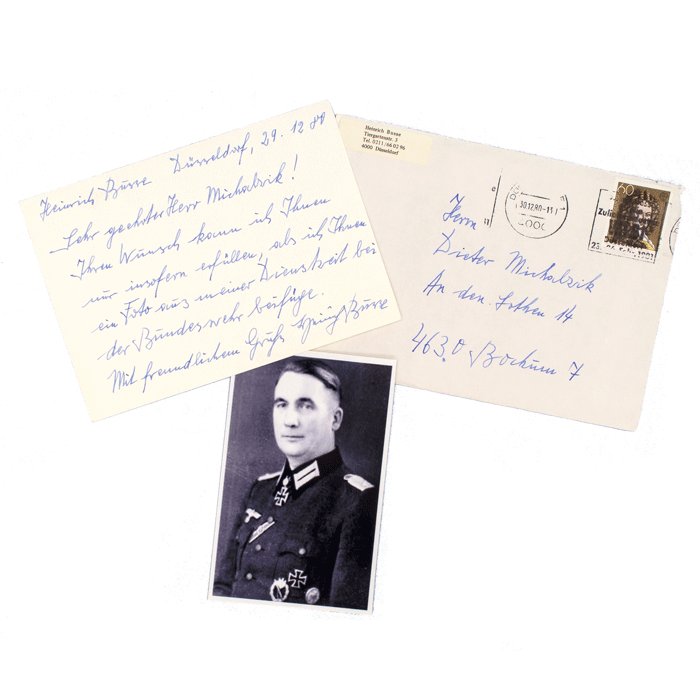 Heinrich Busse Düsseldorf, 29. 12 80
Sehr geehrter Herr Michalzik!
Ihren Wunsch kann ich Ihnen
nur insofern erfüllen, als ich Ihnen
ein Foto aus meiner Dienstzeit bei
der Bundeswehr beifüge.
Mit freundlichem Gruß Heinrich Busse
Heinrich Busse
Tiergartenstr. 3
Tel. 0211/66 02 96
4000 Düsseldorf
30.12.80-11
4000
60
Herrn
Dieter Michalzik
An den Lothen 14
4630 Bochum 7